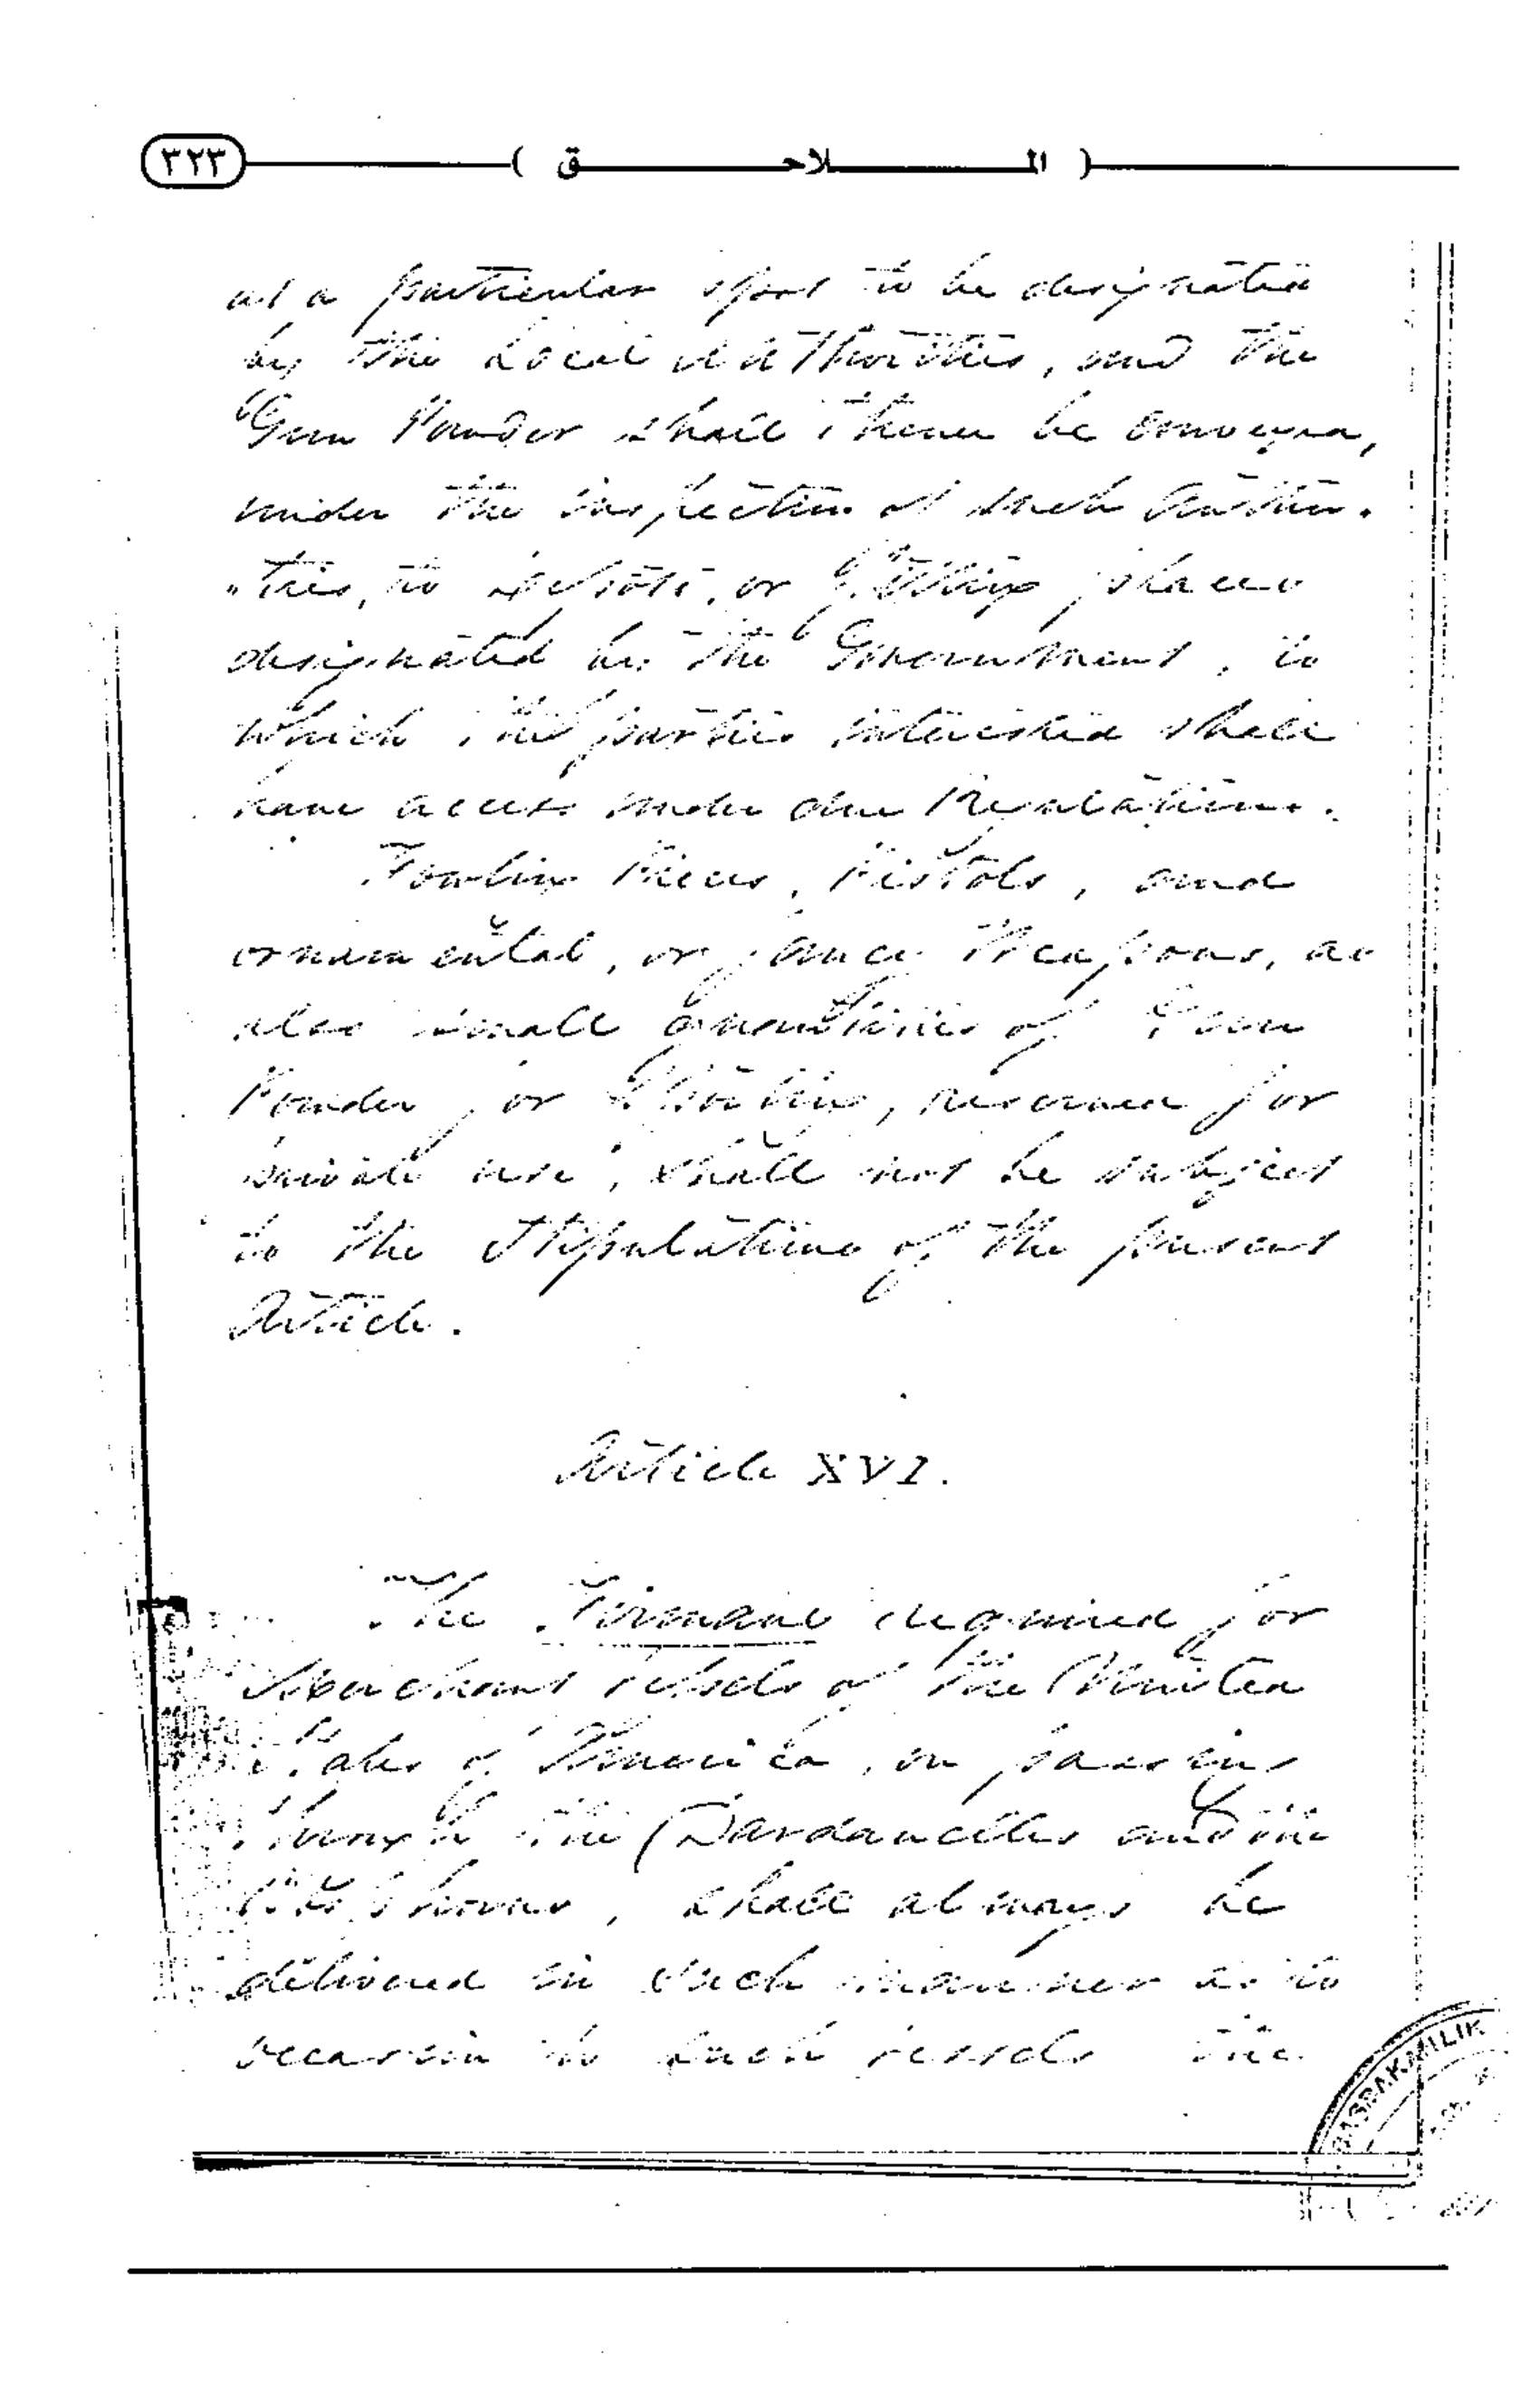 ٣٢٣
( الملاحق )
at a particular spot to be designated
by the Local Authorities, and the
Gun Powder shall thence be conveyed,
under the inspection of such Authori-
"ties, to Depots, or fitting places
designated by the Government, to
which the parties interested shall
have access under due Regulations.
Fowling Pieces, Pistols, and
ornamental, or fancy Weapons, as
also small quantities of Gun
Powder, or Shooting, reserved for
private use, shall not be subject
to the Stipulations of the present
Article.
Article XVI.
The Firmans required for
Merchant vessels of the United
States of America, on passing
through the Dardanelles and the
Bosphorus, shall always be
delivered in such manner as to
occasion to such vessels the
BAŞBAKANLIK